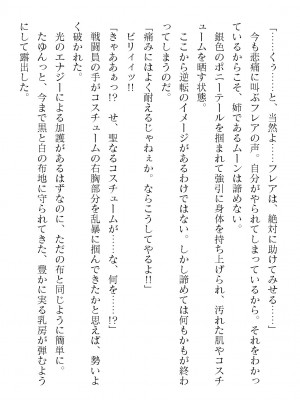 「……くぅ……と、当然よ……フレアは、絶対に助けてみせる……」
今も悲痛に叫ぶフレアの声。自分がやられてしまっているから。それをわかっ
ているからこそ、姉であるムーンは諦めない。
銀色のポニーテールを掴まれて強引に身体を持ち上げられ、汚れた肌やコスチ
ュームを晒す状態。
ここから逆転のイメージがあるわけではない。しかし諦めては何もかもが終わ
ってしまうのだ。
「痛みにはよく耐えるじゃねぇか。ならこうしてやるよ!!」
ビリィィッ!!
「きゃああぁっ!? せ、聖なるコスチュームが……な、何を……!?」
戦闘員の手がコスチュームの右胸部分を乱暴に掴んできたかと思えば、勢いよ
く破かれた。
光のエナジーによる加護があるはずなのに、ただの布と同じように簡単に。
たゆんっと、今まで黒と白の布地に守られてきた、豊かに実る乳房が弾むよう
にして露出した。